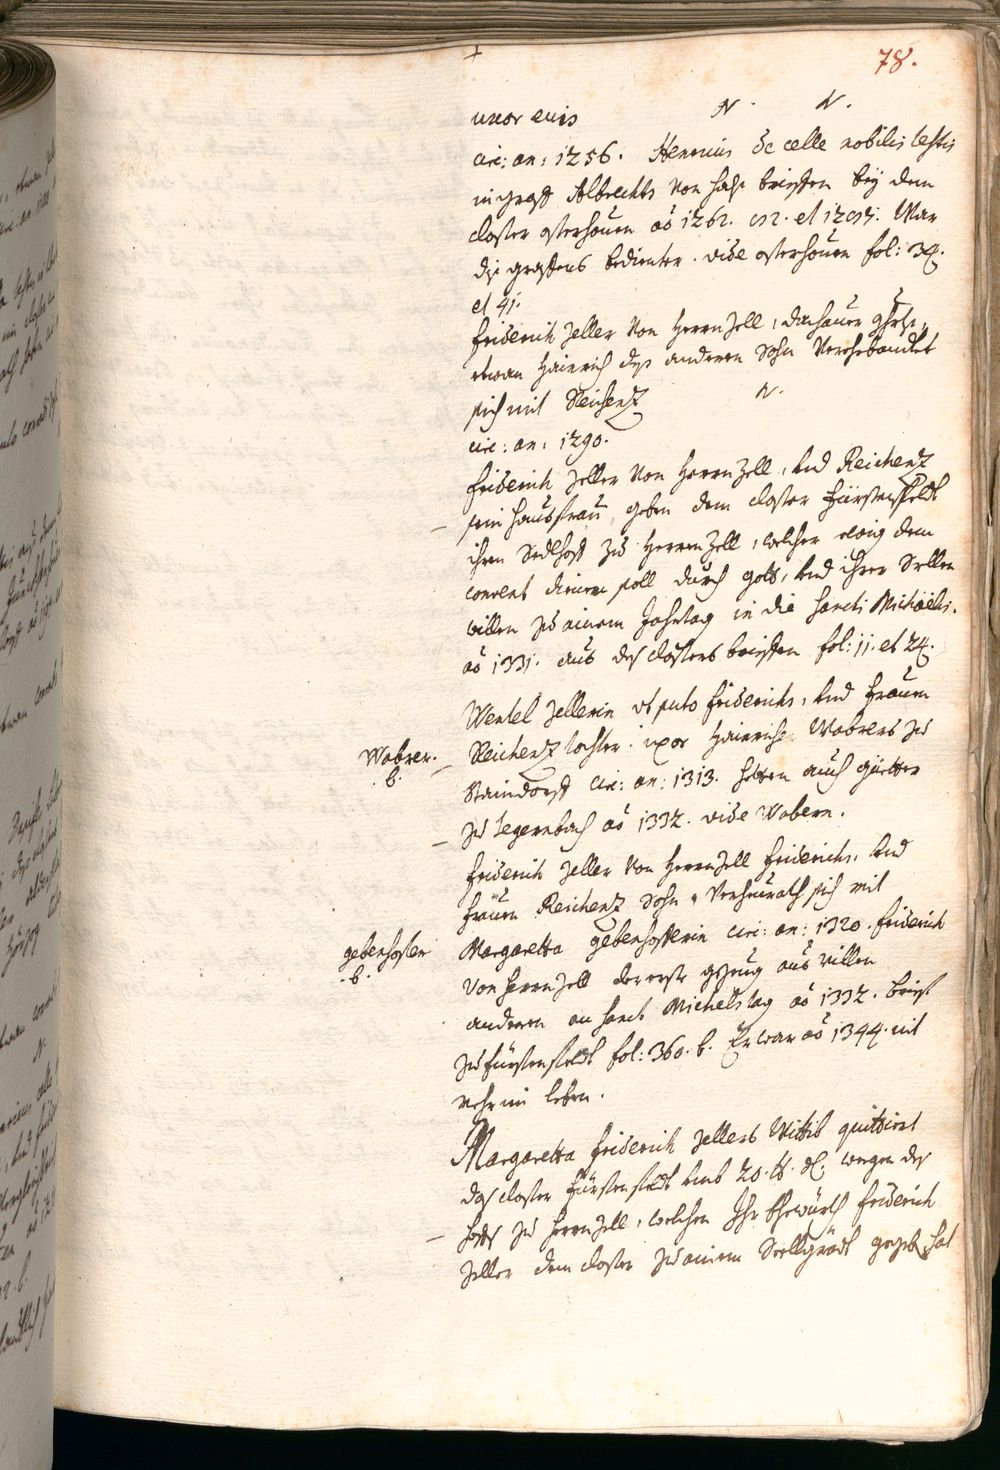 78.
uxor eius N. N.
circ: an: 1256. Henricus de celle nobilis testis
in graff Albrechts von Hals brieffen bey dem
closter osterhouen aõ 1262. et War
diß graffens bedienter. vide osterhouen fol: 34.
et 41.
friderich Zeller von Herrnzell, dachauer gſchts,
etwan Hainrich deß anderen Sohn Verehrbandlet
sich mit Reichentz N.
circ: an: 1290.
friderich Zeller von Herrnzell, und Reichentz
sein hausfrau, geben dem closter fürstenfeldt
ihren Sedlhoff zu Herrnzell, welcher ewig dem
convent dienen soll durch gott, und ihrer Seellen
willen zu ainem Jahrtag in die sancti Michaelis.
aõ 1331. aus des closters brieffen fol: 11. et 24.
Wentel Zellerin ut puto friderichs, und frauen
Wabrer. Reichentz tochter. uxor Hainrichs Wabrers zu
b. Staindorff circ: an: 1313. hetten auch güetter
zu Tegernbach aõ 1332. vide Wabern.
friderich Zeller von Herrnzell friderichs, und
frauen Reichentz Sohn, Verheurath sich mit
gebenhofer Margaretta gebenhofferin circ: an: 1320. friderich
b. von Herrnzell der erste gezeug aus villen
anderen an sanct Michelstag aõ 1332. brief
zu fürstenfeldt fol: 360. b. Er war aõ 1344. nit
mehr im leben.
Margaretta friderich Zellers Wittib quittiert
das closter fürstenfeldt umb 20. ℔. ₰. wegen des
hoffs zu Herrnzell, welchen Ihr Ehewürth friderich
Zeller dem closter zu ainem Seellgrädt gegeben hat